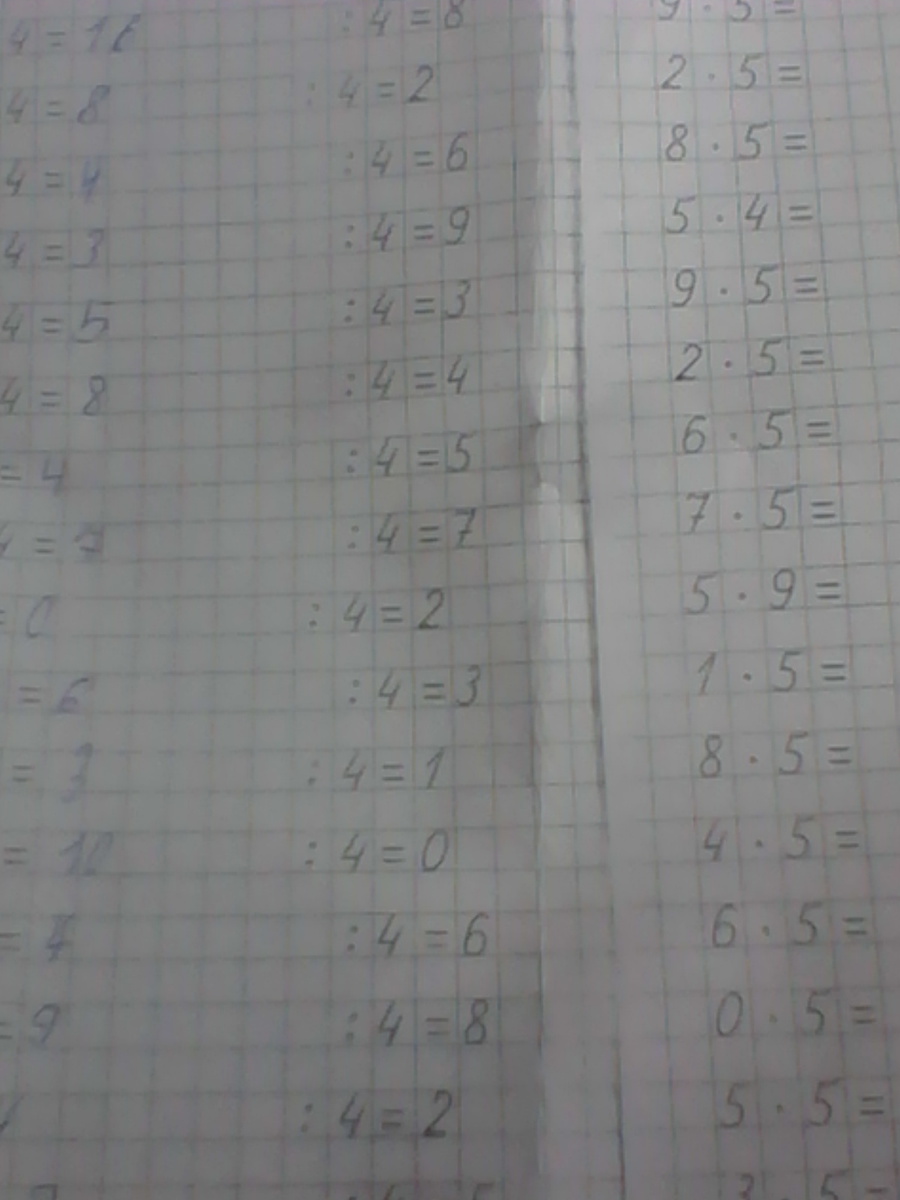 4 = 16 : 4 = 8 9 · 5 =
4 = 8 : 4 = 2 2 · 5 =
4 = 4 : 4 = 6 8 · 5 =
4 = 3 : 4 = 9 5 · 4 =
4 = 5 : 4 = 3 9 · 5 =
4 = 8 : 4 = 4 2 · 5 =
= 4 : 4 = 5 6 · 5 =
4 = 7 : 4 = 7 7 · 5 =
= 0 : 4 = 2 5 · 9 =
= 6 : 4 = 3 1 · 5 =
= 3 : 4 = 1 8 · 5 =
= 10 : 4 = 0 4 · 5 =
= : 4 = 6 6 · 5 =
= 9 : 4 = 8 0 · 5 =
: 4 = 2 5 · 5 =